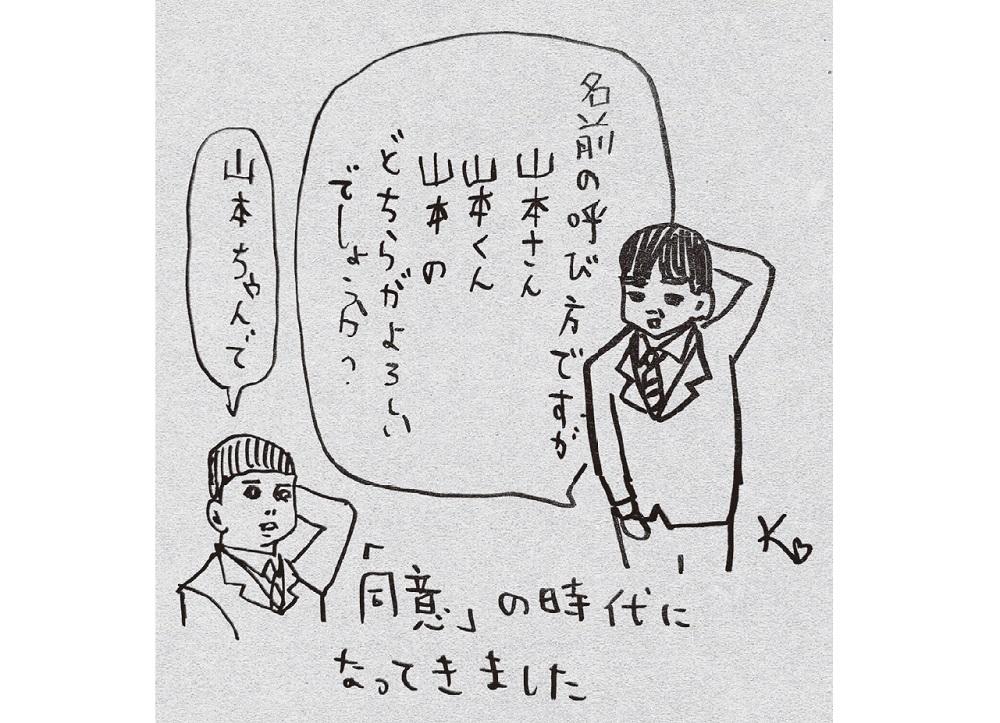 名前の呼び方ですが
山本さん
山本くん
山本の
どちらがよろしい
でしょうか?
山本ちゃんで
「同意」の時代に
なってきました
K